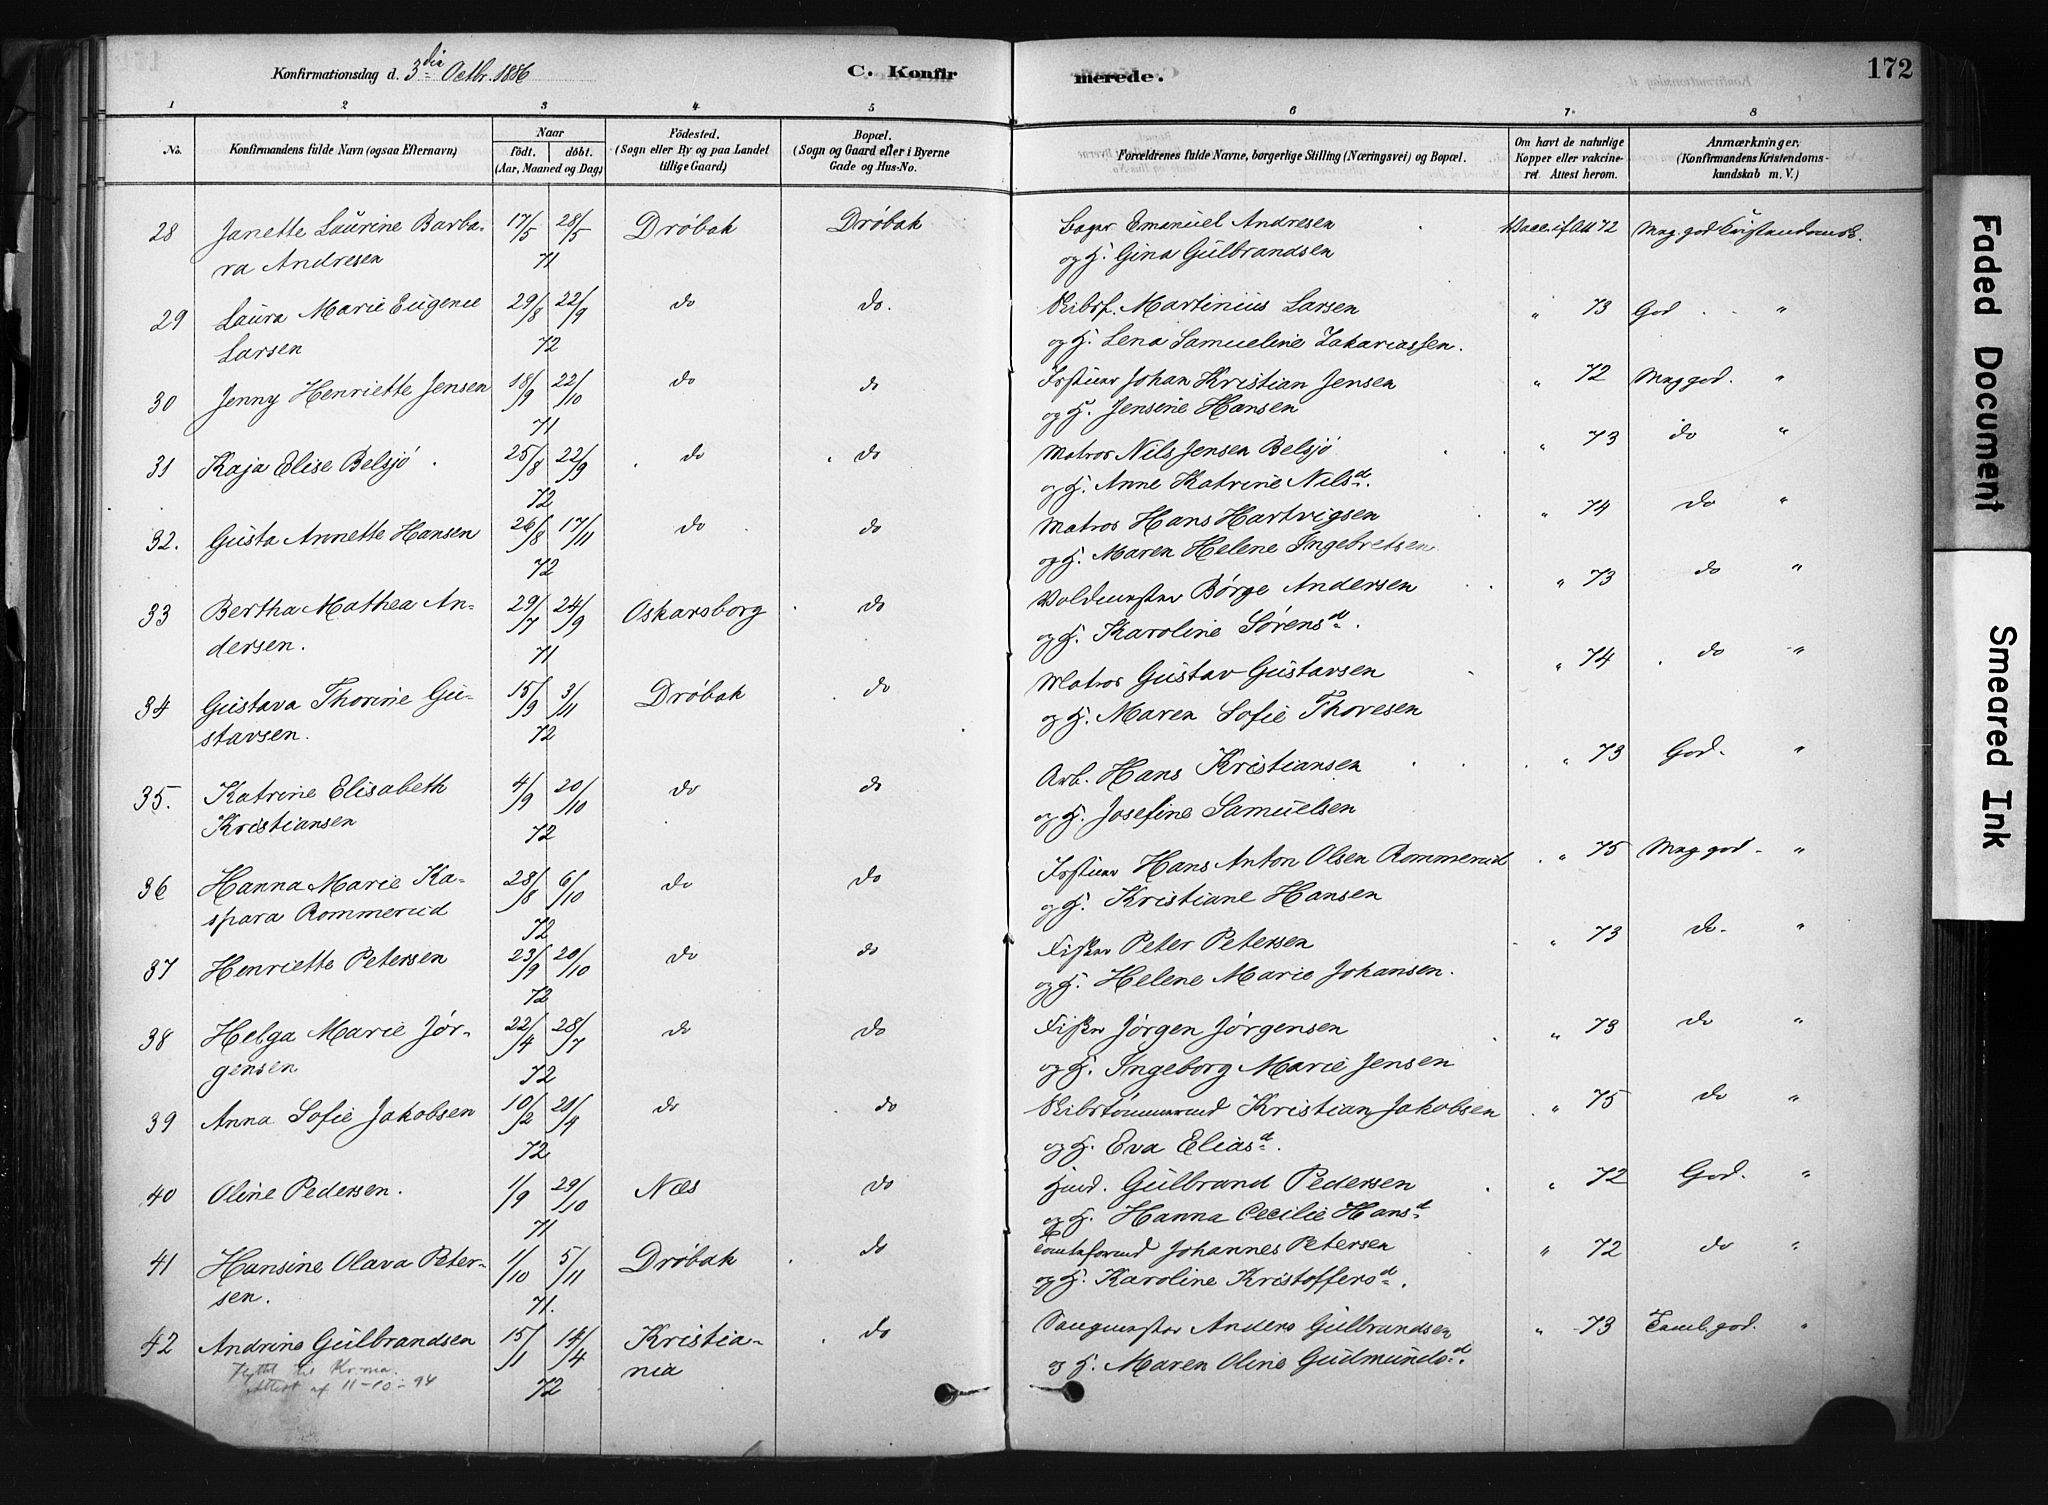 Konfirmationsdag d. 3die Octbr. 1886
C. Konfirmerede.
172
1 2 3 4 5 6 7 8
No.
Konfirmandens fulde Navn (ogsaa Efternavn)
Naar
født. døbt.
(Aar, Maaned og Dag)
Födested.
(Sogn eller By og paa Landet
tillige Gaard)
Bopæl.
(Sogn og Gaard eller i Byerne
Gade og Hus-No.
Forældrenes fulde Navne, borgerlige Stilling (Næringsvei) og Bopæl.
Om havt de naturlige
Kopper eller vakcine-
ret Attest herom.
Anmærkninger.
(Konfirmandens Kristendoms-
kundskab m. V.)
28 Janette Laurine Barba- 17/5 28/5 Drøbak Drøbak Emanuel Andresen 72 Mug. god Kristendomsk.
ra Andresen 71 og H. Gina Gulbrandsen
29 Laura Marie Eugenie 29/8 22/9 do do. Skibsf. Martinius Larsen " 73 God "
Larsen 72 og H. Lena Samueline Zakariassen.
30 Jenny Henriette Jensen 18/9 22/10 do do Johan Kristian Jensen " 72 Mug god. "
71 og H. Jensine Hansen
31 Kaja Elise Belsjø 25/8 22/9 do do Matros Nils Jensen Belsjø " 73 do "
72 og H. Anne Katrine Nilsd.
32. Gusta Annette Hansen 26/8 17/11 do do Matros Hans Hartvigsen " 74 do "
72 og H. Maren Helene Ingebretsen
33 Bertha Mathea An- 29/7 24/9 Oskarsborg do Voldmester Børge Andersen " 73 do "
dersen. 71 og H. Karoline Sørensd.
34 Gustava Thorine Gu- 15/9 3/11 Drøbak do Matros Gustav Gustavsen " 74 do "
stavsen. 72 og H. Maren Sofie Thoresen
35. Katrine Elisabeth 4/9 20/10 do do Arb. Hans Kristiansen " 73 God. "
Kristiansen 72 og H. Josefine Samuelsen
36 Hanna Marie Ka- 28/8 6/10 do do Hans Anton Olsen Rommerud " 75 Mug god "
spara Rommerud 72 og H. Kristiane Hansen
37 Henriette Petersen 23/9 20/10 do do Fisker Peter Petersen " 73 do "
72 og H. Helene Marie Johansen.
38 Helga Marie Jør- 22/4 28/7 do do Fisker Jørgen Jørgensen " 73 do "
gensen 72 og H. Ingeborg Marie Jensen
39 Anna Sofie Jakobsen 10/2 21/4 do do Skibstømmermd Kristian Jakobsen " 75 do "
72 og H. Eva Eliasd.
40 Oline Pedersen. 1/9 29/10 Næs do Gulbrand Pedersen " 72 God. "
71 og H. Hanna Cecilie Hansd
41 Hansine Olava Peter- 1/10 5/11 Drøbak do Johannes Petersen " 72 do "
sen. 71. og H. Karoline Kristoffersd.
42 Andrine Gulbrandsen 15/1 14/4 Kristia- do Anders Gulbrandsen " 73 god. "
nia 72 og H. Maren Oline Gudmundsd.
Flyttet til Kr.nia.
Attest af 11-10-94
Faded Document
Smeared Ink